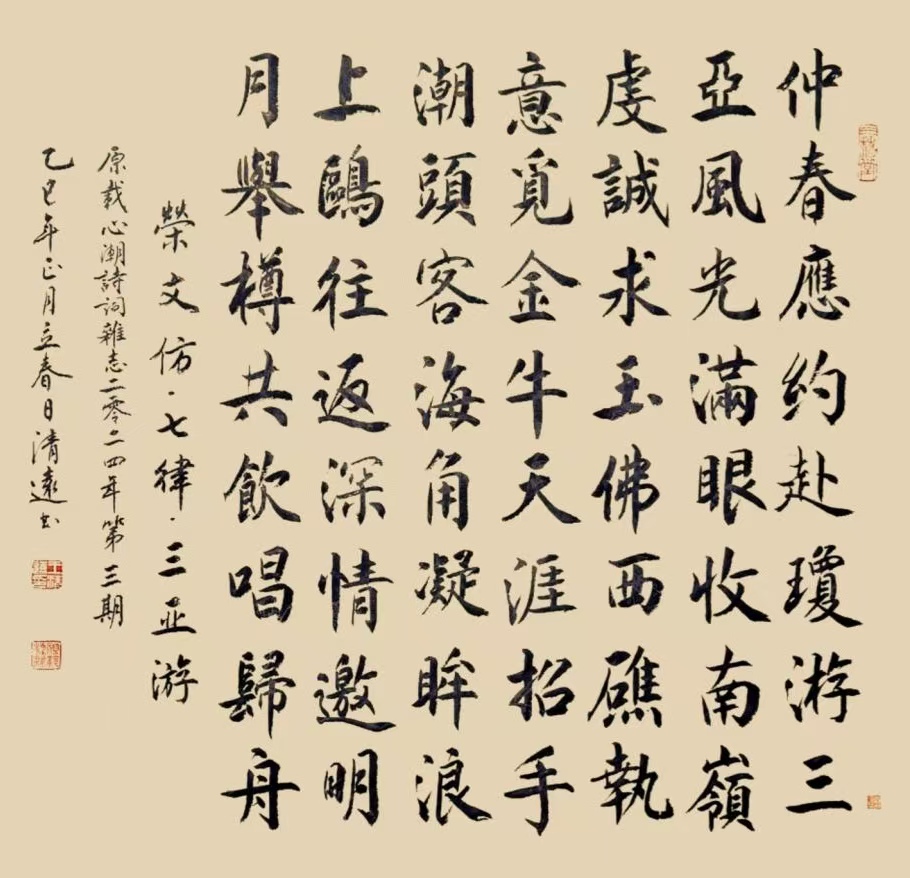 仲春應約赴瓊游三
亞風光滿眼收南嶺
虔誠求玉佛西礁執
意覓金牛天涯招手
潮頭客海角凝眸浪
上鷗往返深情邀明
月舉樽共飲唱歸舟
榮文仿·七律·三亚游
原載心潮詩詞雜志二零二四年第三期
乙巳年正月立春日清遠书